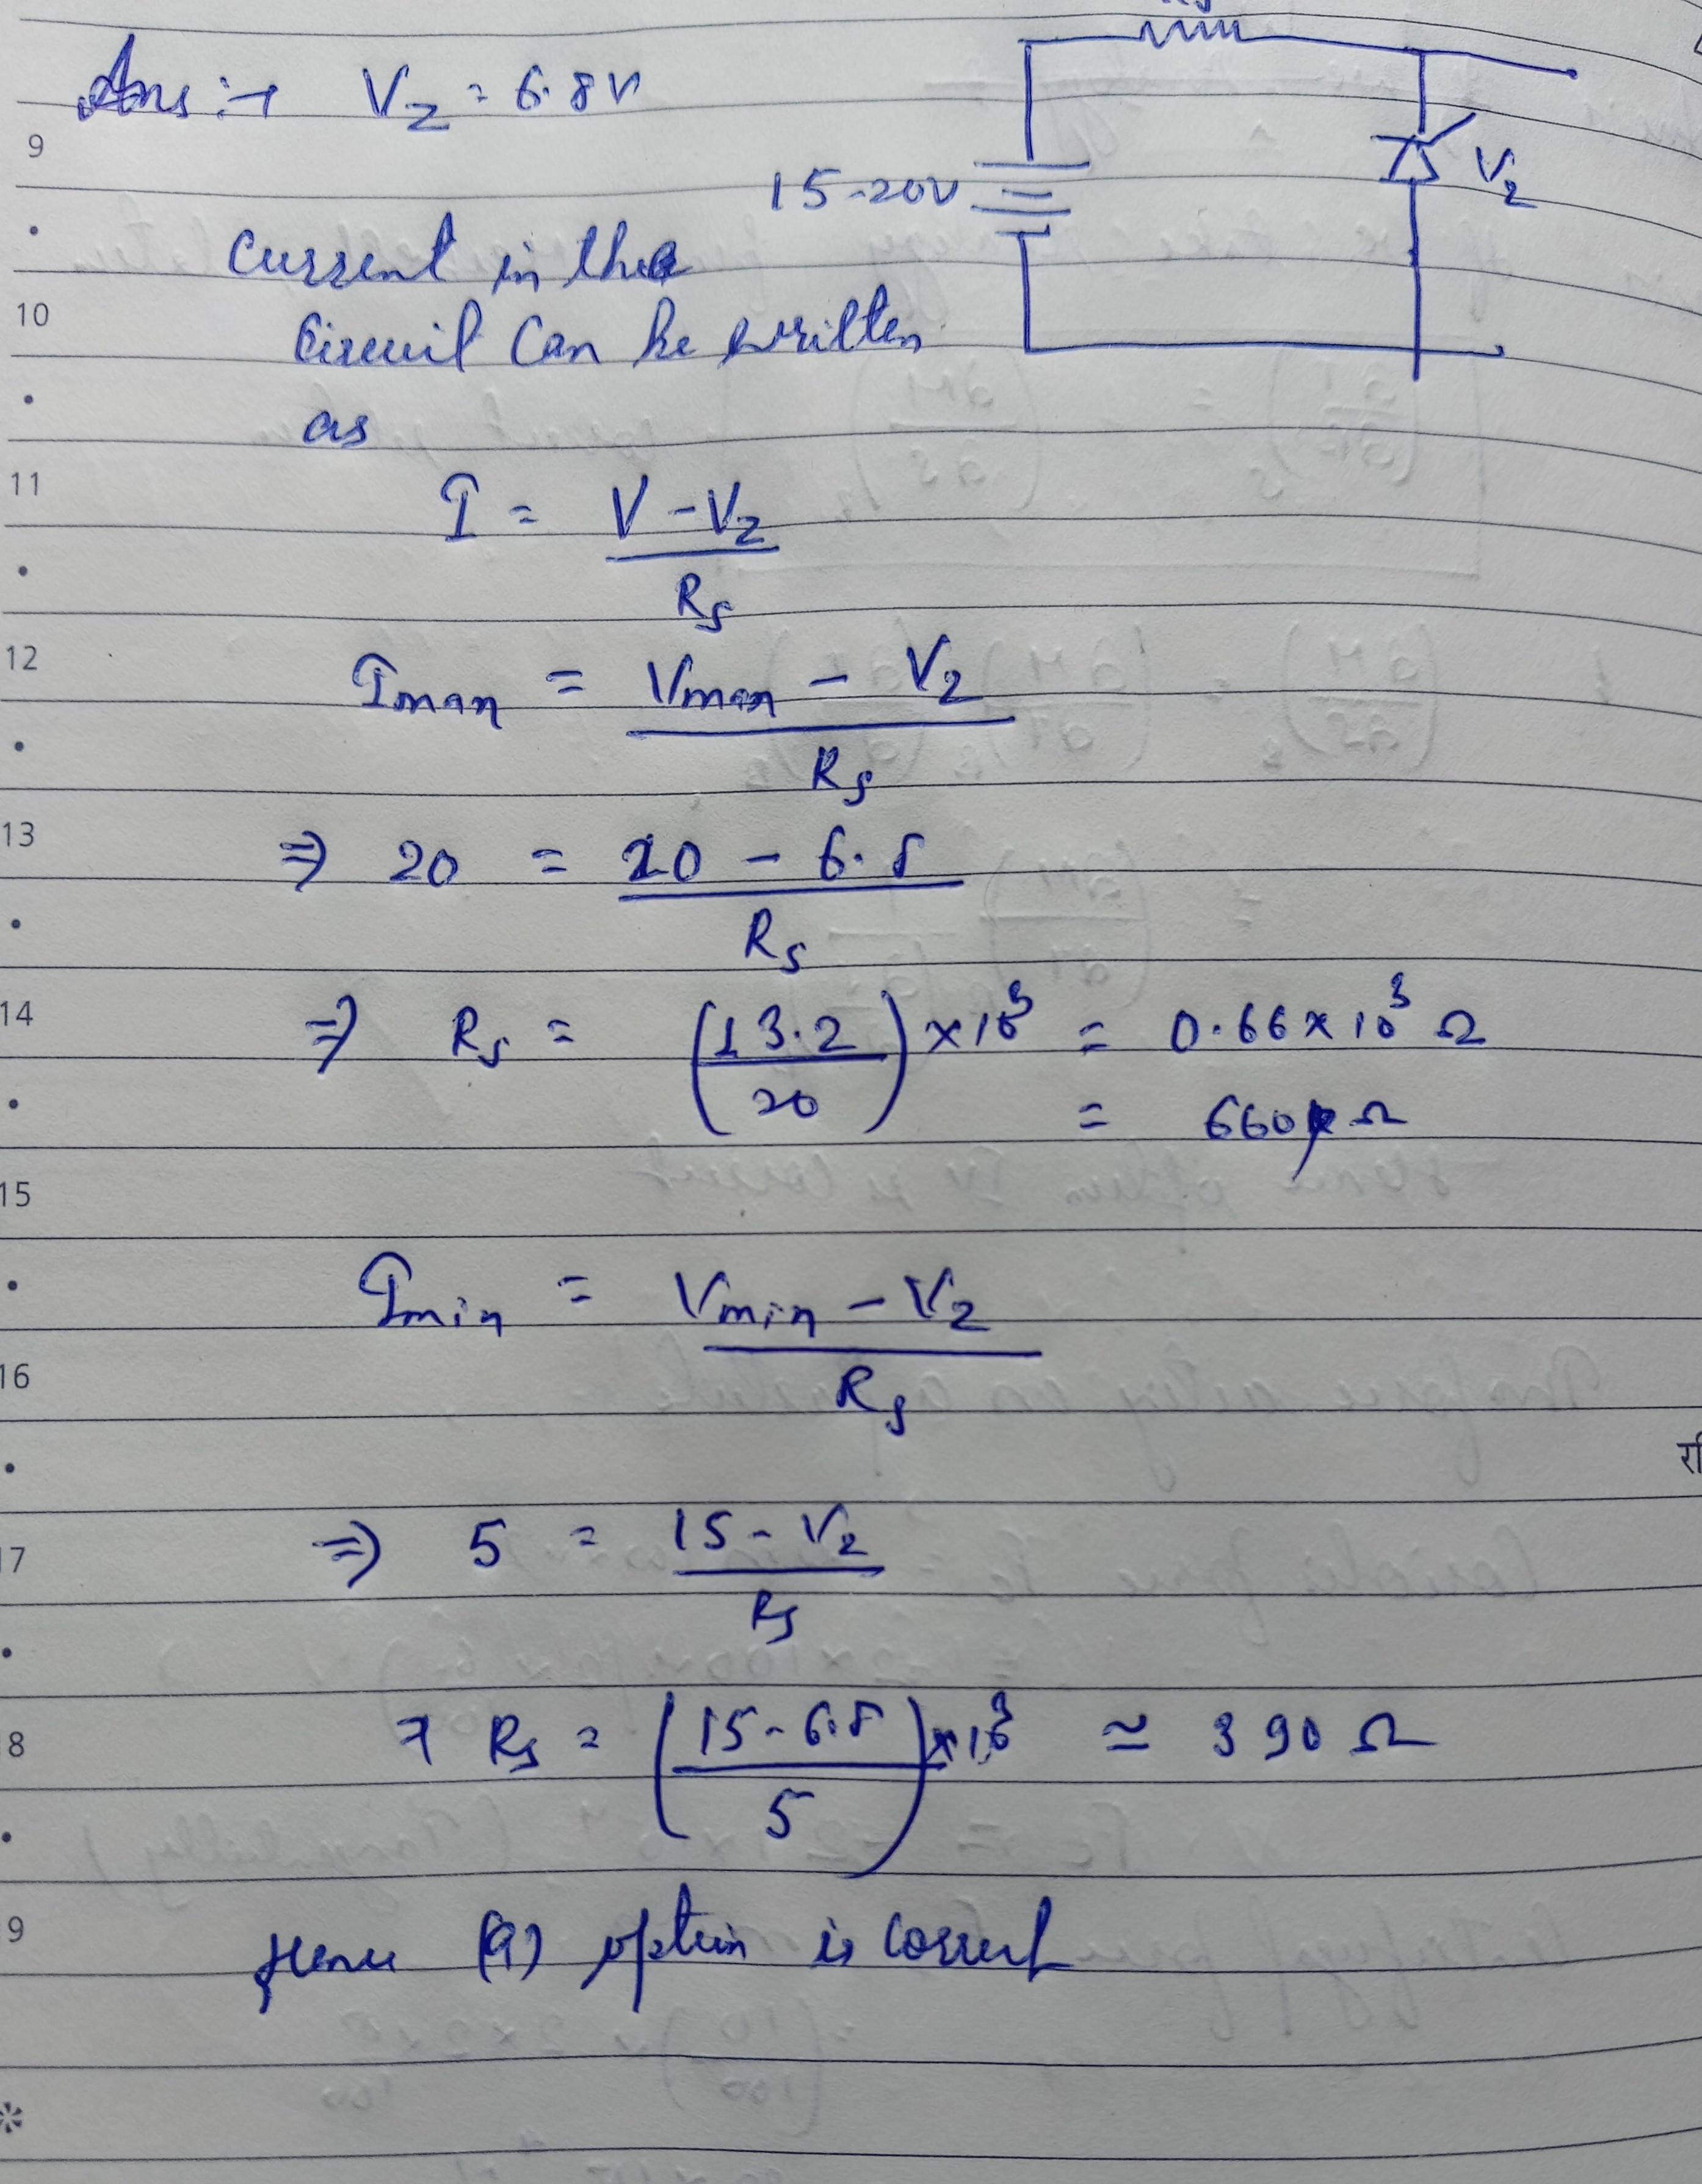 Ans :→ V_Z = 6.8V
15-20V
V_Z
9
Current in the
10
Circuit Can be written
as
11
I = (V - V_Z) / R_S
12
I_max = (V_max - V_Z) / R_S
13
⇒ 20 = (20 - 6.8) / R_S
14
⇒ R_S = (13.2 / 20) × 10^3 = 0.66 × 10^3 Ω
= 660 Ω
15
I_min = (V_min - V_Z) / R_S
16
रवि
17
⇒ 5 = (15 - V_Z) / R_S
18
⇒ R_S = ((15 - 6.8) / 5) × 10^3 ≃ 390 Ω
19
Hence (a) option is correct